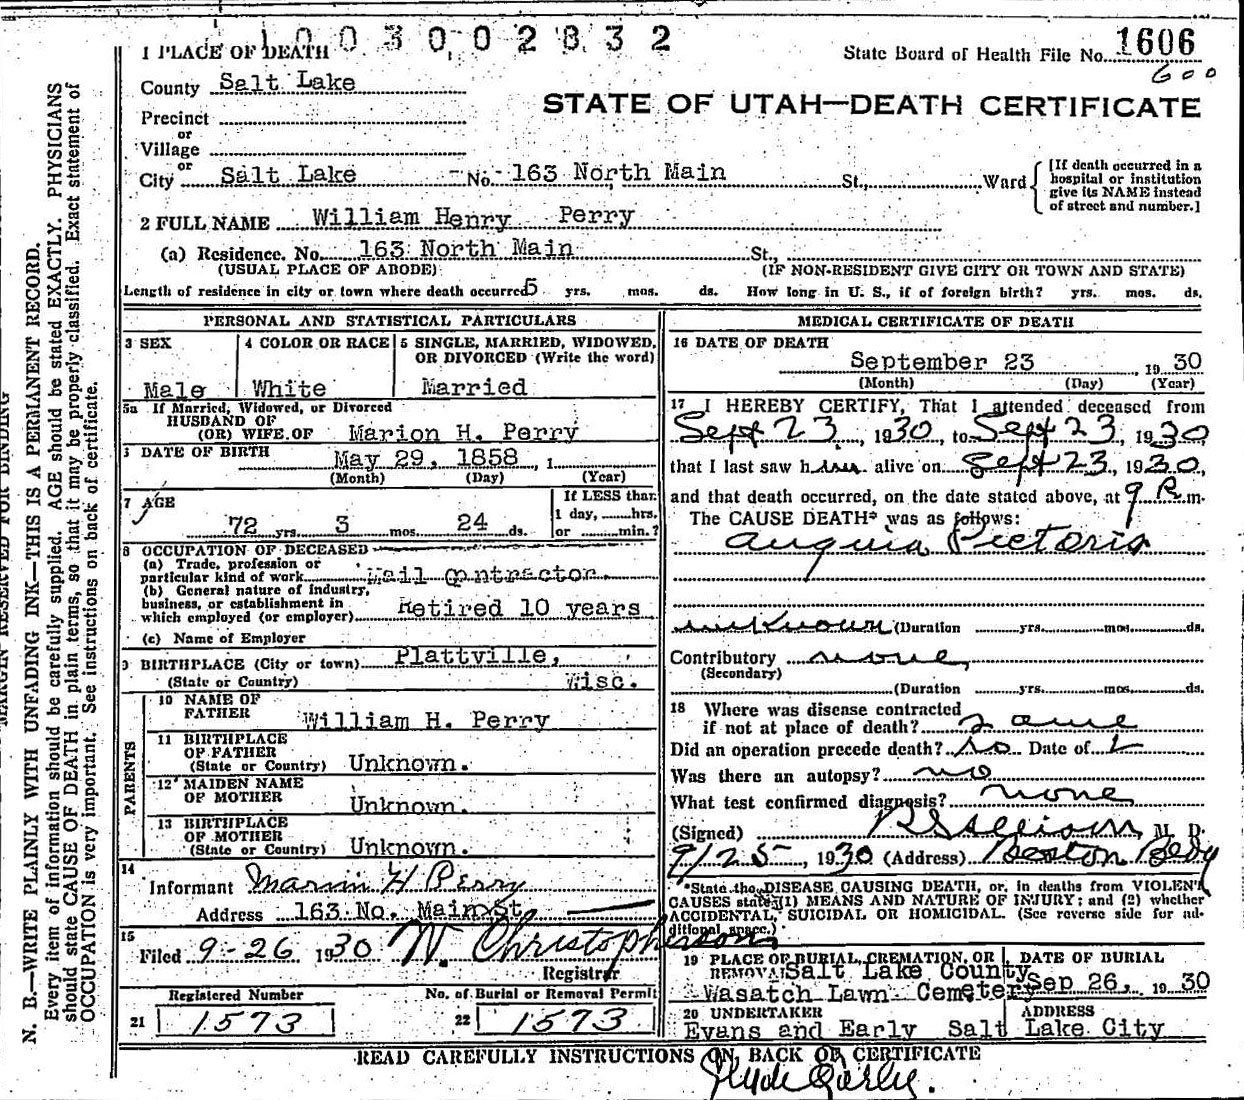 1003002832
1 PLACE OF DEATH
State Board of Health File No. 1606
600
County Salt Lake
STATE OF UTAH—DEATH CERTIFICATE
Precinct
or
Village
or
City Salt Lake No. 163 North Main St., Ward
[If death occurred in a
hospital or institution
give its NAME instead
of street and number.]
2 FULL NAME William Henry Perry
(a) Residence. No. 163 North Main St.,
(USUAL PLACE OF ABODE) (IF NON-RESIDENT GIVE CITY OR TOWN AND STATE)
Length of residence in city or town where death occurred 5 yrs. mos. ds. How long in U. S., if of foreign birth? yrs. mos. ds.
PERSONAL AND STATISTICAL PARTICULARS
3 SEX 4 COLOR OR RACE 5 SINGLE, MARRIED, WIDOWED,
OR DIVORCED (Write the word)
Male White Married
5a If Married, Widowed, or Divorced
HUSBAND OF
(OR) WIFE OF Marion H. Perry
DATE OF BIRTH May 29, 1858, 1
(Month) (Day) (Year)
7 AGE If LESS than
1 day, hrs.
72 yrs. 3 mos. 24 ds. or min.?
8 OCCUPATION OF DECEASED
(a) Trade, profession or
particular kind of work Mail contractor.
(b) General nature of industry,
business, or establishment in
which employed (or employer) Retired 10 years
(c) Name of Employer
9 BIRTHPLACE (City or town) Plattville,
(State or Country) Wisc.
PARENTS
10 NAME OF
FATHER William H. Perry
11 BIRTHPLACE
OF FATHER
(State or Country) Unknown.
12 MAIDEN NAME
OF MOTHER Unknown.
13 BIRTHPLACE
OF MOTHER
(State or Country) Unknown.
14
Informant Marion H Perry
Address 163 No. Main St
15
Filed 9-26 1930 W. Christopherson
Registrar
Registered Number No. of Burial or Removal Permit
21 1573 22 1573
MEDICAL CERTIFICATE OF DEATH
16 DATE OF DEATH
September 23, 1930
(Month) (Day) (Year)
17 I HEREBY CERTIFY, That I attended deceased from
Sept 23, 1930, to Sept 23, 1930
that I last saw him alive on Sept 23, 1930,
and that death occurred, on the date stated above, at 9 P. m.
The CAUSE DEATH* was as follows:
Anguia Pectoris
unknown (Duration yrs. mos. ds.
Contributory none,
(Secondary)
(Duration yrs. mos. ds.
18 Where was disease contracted
if not at place of death? same
Did an operation precede death? no Date of
Was there an autopsy? no
What test confirmed diagnosis? none
(Signed) M. D.
9/25, 1930 (Address)
*State the DISEASE CAUSING DEATH, or, in deaths from VIOLENT
CAUSES state (1) MEANS AND NATURE OF INJURY; and (2) whether
ACCIDENTAL, SUICIDAL OR HOMICIDAL. (See reverse side for ad-
ditional space.)
19 PLACE OF BURIAL, CREMATION, OR DATE OF BURIAL
REMOVAL Salt Lake County
Wasatch Lawn Cemetery Sep 26, 1930
20 UNDERTAKER ADDRESS
Evans and Early Salt Lake City
READ CAREFULLY INSTRUCTIONS ON BACK OF CERTIFICATE
MARGIN RESERVED FOR BINDING
N. B.—WRITE PLAINLY WITH UNFADING INK—THIS IS A PERMANENT RECORD.
Every item of information should be carefully supplied. AGE should be stated EXACTLY. PHYSICIANS
should state CAUSE OF DEATH in plain terms, so that it may be properly classified. Exact statement of
OCCUPATION is very important. See instructions on back of certificate.